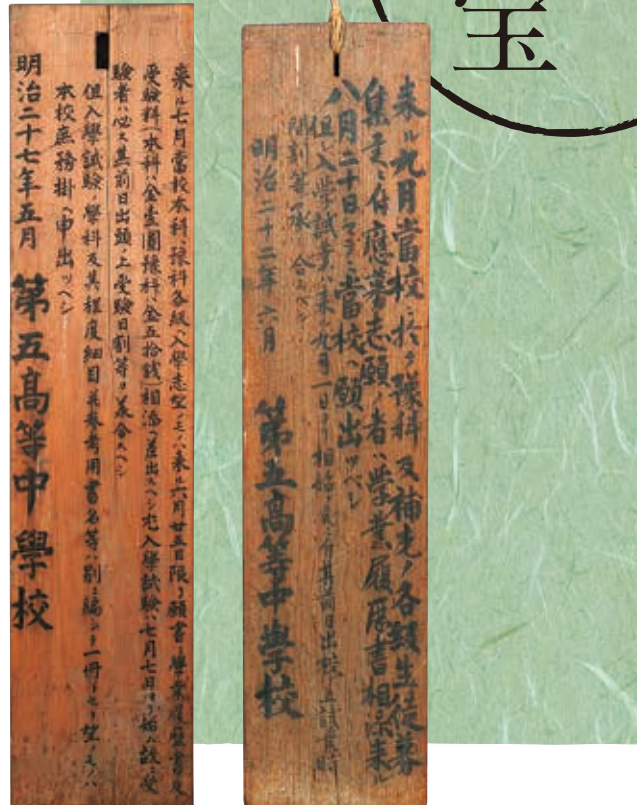 宝
来ル九月當校ニ於テ豫科及補充ノ各級生徒募
集ニ付應募志願ノ者ハ學業履歴書相添来ル
八月二十日マテニ當校ヘ願出ツヘシ
但シ入學試業ハ来ル九月一日ヨリ相始メ候ニ付其前日出校ノ上試業時
間割等承リ合スヘシ
明治二十二年六月 第五高等中學校
来ル七月當校本科豫科各級ヘ入學志望ノモノハ来ル六月廿五日限リ願書ニ學業履歴書及
受験料「本科ハ金壹圓豫科ハ金五拾銭」相添ヘ差出スヘシ尤入學試験ハ七月七日ヨリ始ム故ニ受
験者ハ必ス其前日出頭ノ上受験日割等ヲ承合スヘシ
但入學試験ノ學科及其程度細目並参考用書名等ハ別ニ編シテ一冊トセリ望ノモノハ
本校庶務掛ヘ申出ツヘシ
明治二十七年五月 第五高等中學校